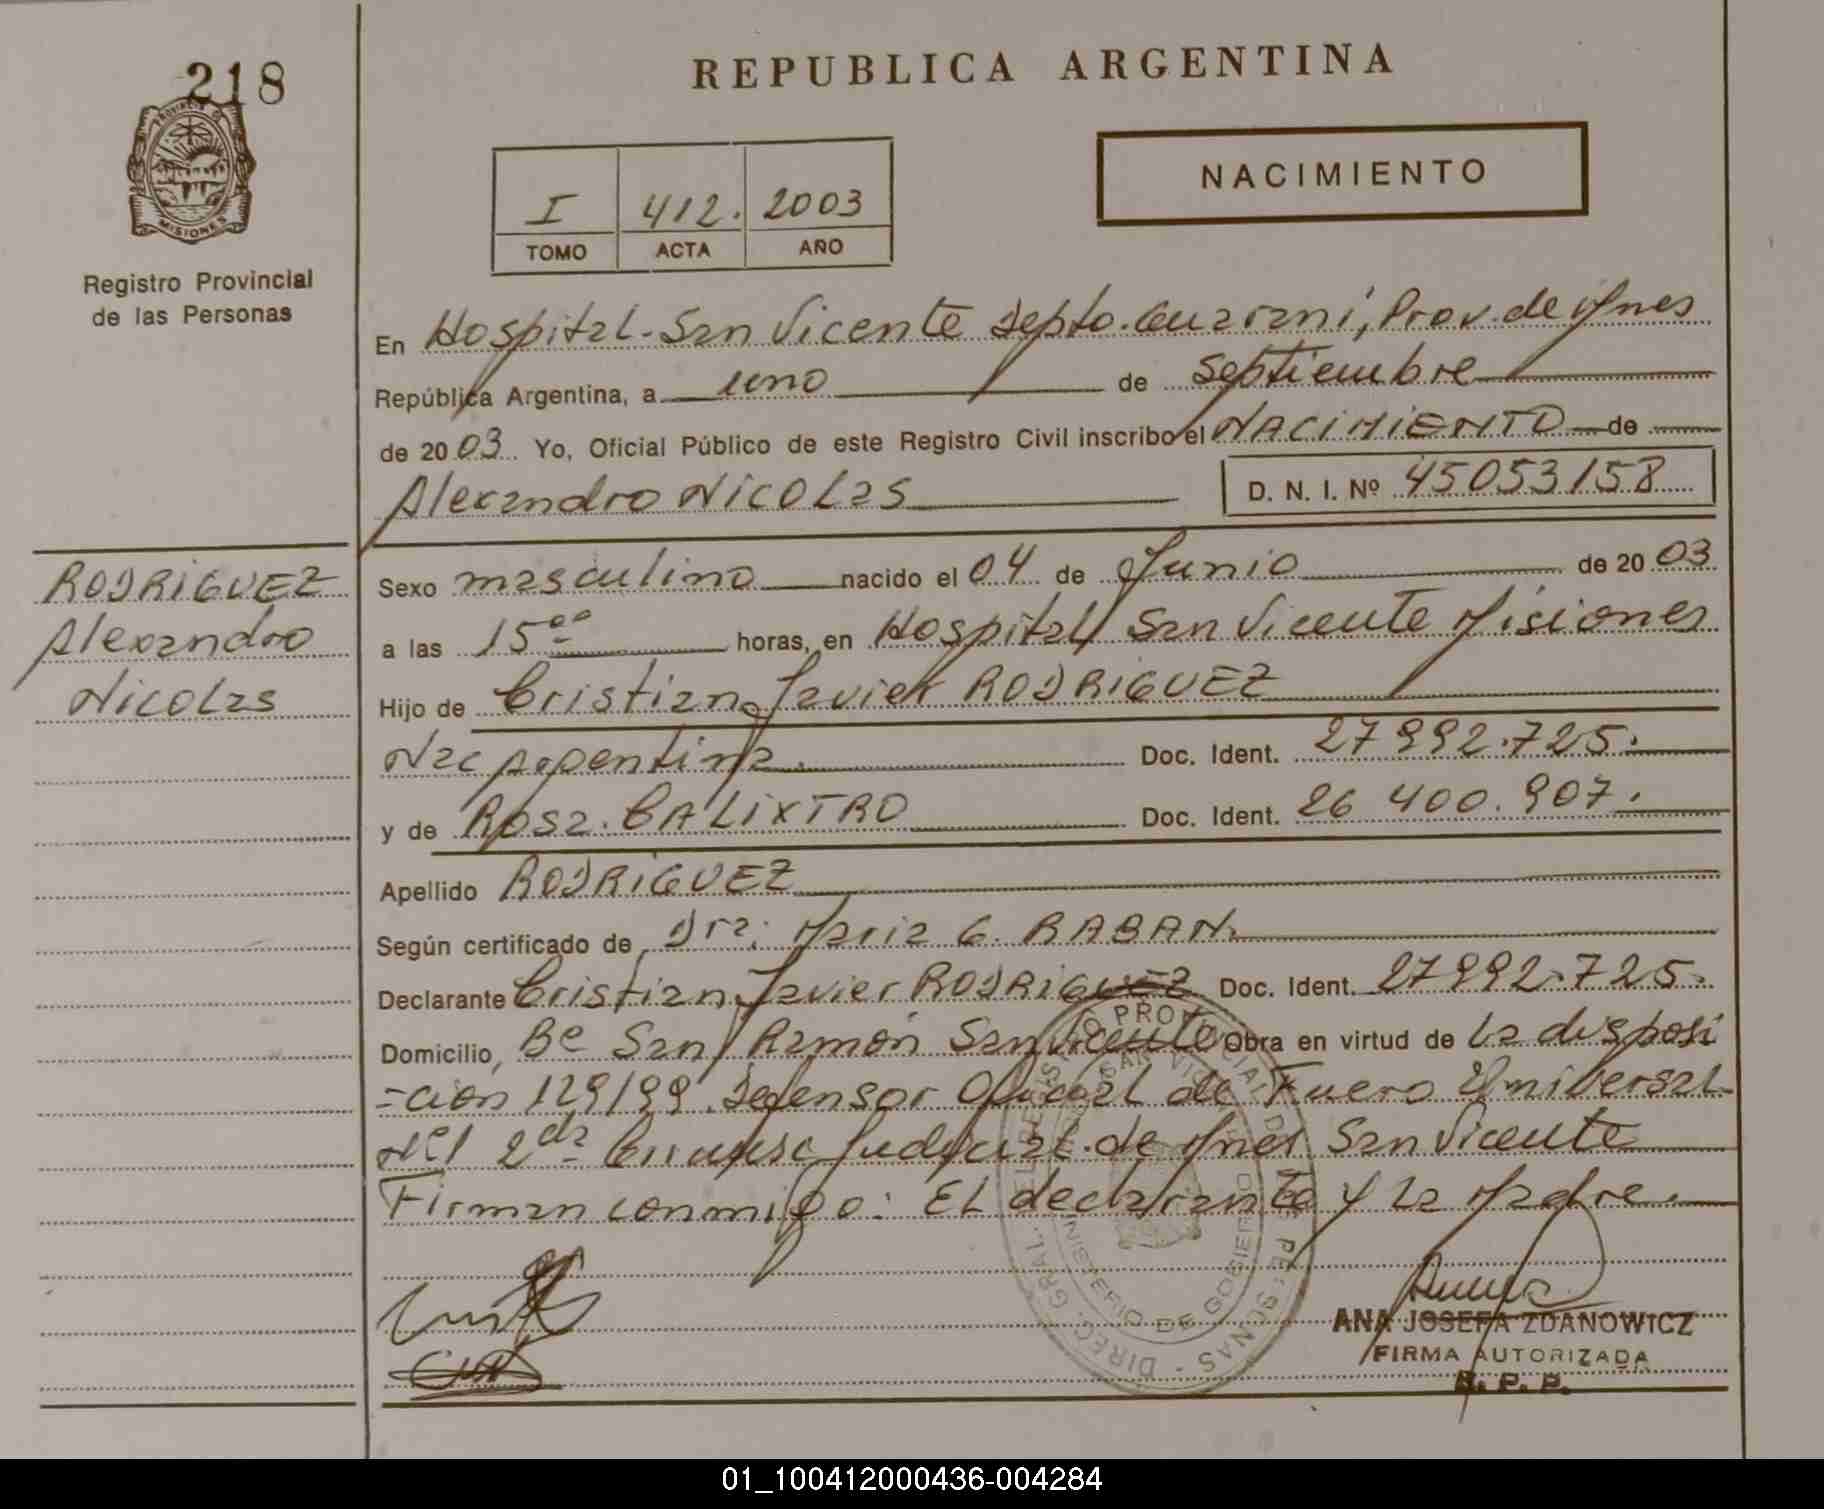 218
REPUBLICA ARGENTINA
PROVINCIA DE
MISIONES
Registro Provincial
de las Personas
I 412. 2003
TOMO ACTA AÑO
NACIMIENTO
En Hospital-San Vicente Depto. Guarani, Prov. de Mnes
República Argentina, a uno de Septiembre
de 2003 Yo, Oficial Público de este Registro Civil inscribo el NACIMIENTO de
Alexandro Nicolas
D. N. I. Nº 45053158
RODRIGUEZ
Alexandro
Nicolas
Sexo masculino nacido el 04 de Junio de 2003
a las 15ºº horas, en Hospital San Vicente Misiones
Hijo de Cristian Javier RODRIGUEZ
Nac Argentina. Doc. Ident. 27992.725.
y de Rosa. CALIXTRO Doc. Ident. 26 400.907.
Apellido RODRIGUEZ
Según certificado de Dra: Maria G. RABAN.
Declarante Cristian Javier RODRIGUEZ Doc. Ident. 27992.725.
Domicilio, Bº San Ramón San Vicente Obra en virtud de la disposi
=cion 129/99. Defensor Oficial de Fuero Universal
Nº1 2da Judicial. de Mnes San Vicente
Firman conmigo: El declarante y la Madre.
MINISTERIO DE GOBIERNO
ANA JOSEFA ZDANOWICZ
FIRMA AUTORIZADA
R. P. P.
01_100412000436-004284